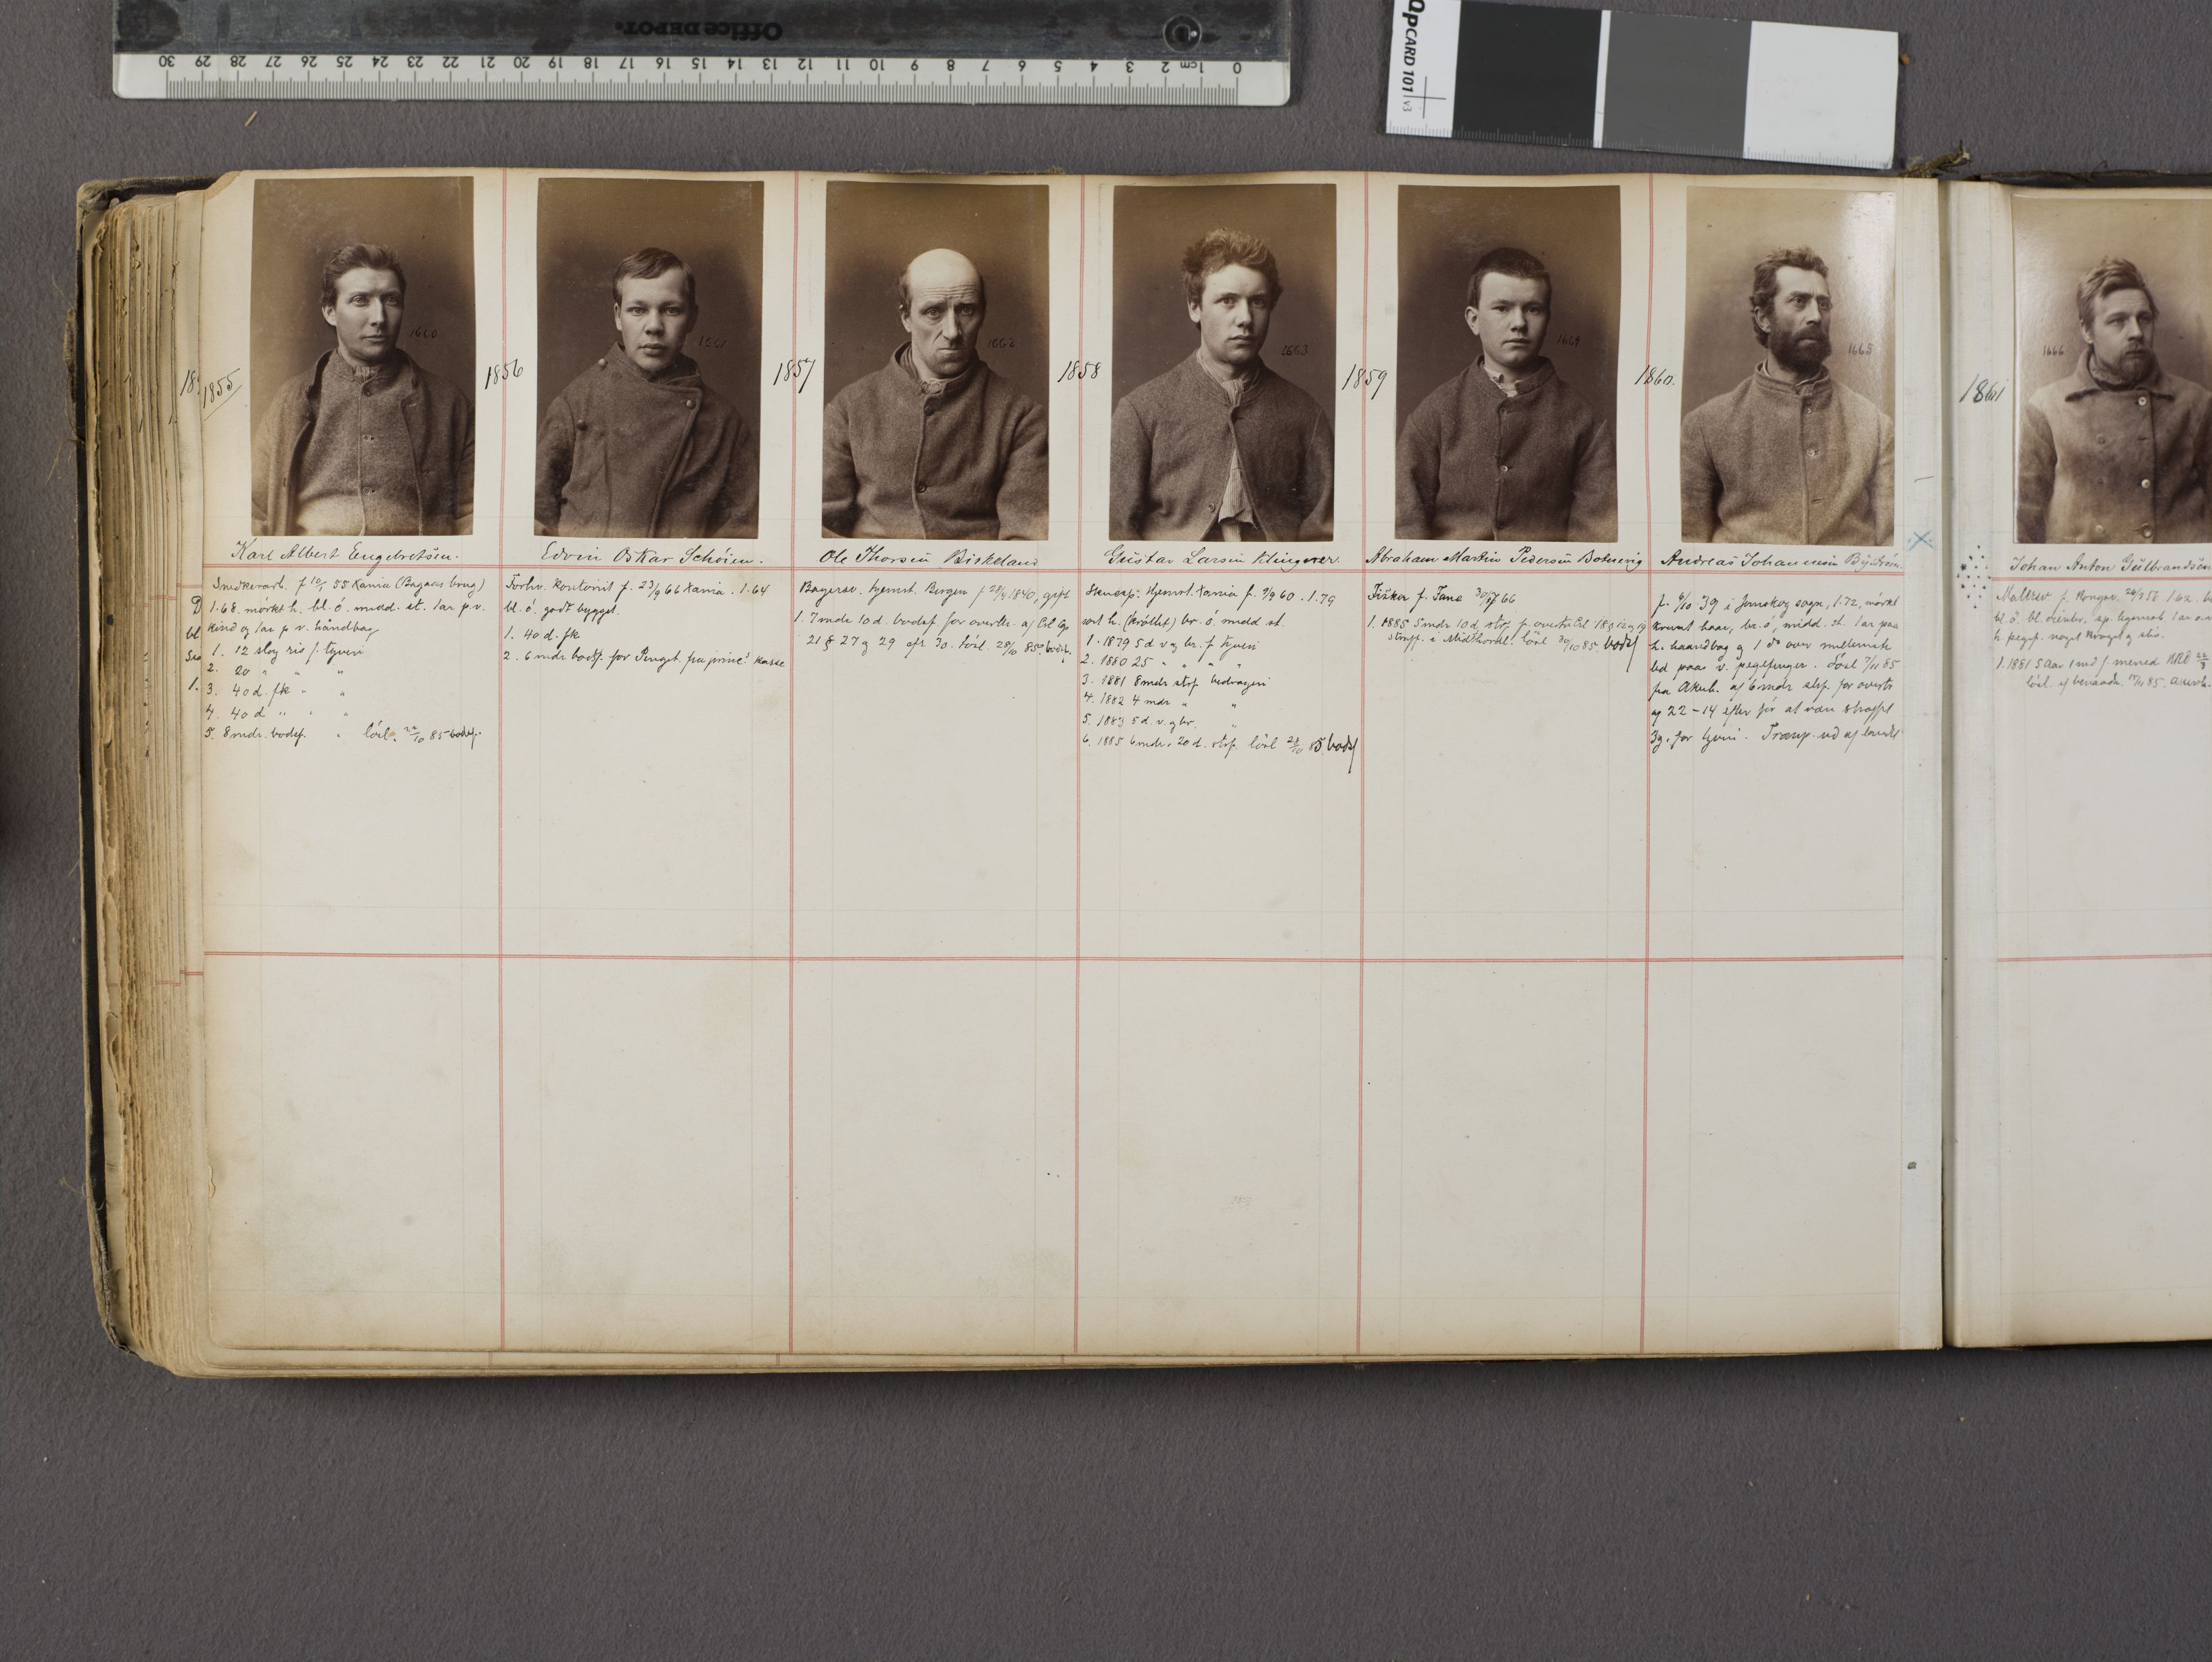 Office DEPOT.
30 29 28 27 26 25 24 23 22 21 20 19 18 17 16 15 14 13 12 11 10 9 8 7 6 5 4 3 2 1cm 0
QPCARD 101 v3
1855
1660
Karl Albert Engebretsen.
Snedkerarb. f 10/5 55 Kania (Bagaas brug)
1.68. mørkt h. bl. ö. midd. st. 1 ar p. v.
kind og 1 ar p v. håndbag
1. 12 slag ris f. tyveri
2. 20 " " "
3. 40 d. fk " "
4. 40 d " " "
5. 8 mdr. bodsf. " lösl. 22/10 85 bodsf.
1856
1661
Edvin Oskar Schöien.
Forhv. kontorist f. 23/9 66 Kania. 1.64
bl. ö. godt bygget.
1. 40 d. fk
2. 6 mdr bodsf. for Penget. fra princ.s kasse
1857
1662
Ole Thorsen Birkeland
Bagersv. hjemst. Bergen f 28/4 1840, gift
1. 7 mdr 10 d. bodsf for overtr. af Crl Cp
21 § 27 og 29 cfr 30. lösl. 28/10 85 bodsf.
1858
1663
Gustav Larsen Klingner.
Skuesp. Hjemst. Kania f. 9/9 60. 1.79
sort h. (krøllet) br. ö. midd st.
1. 1879 5 d v og br. f tyveri
2. 1880 25 " " " "
3. 1881 8 mdr strf bedrageri
4. 1882 4 mdr " "
5. 1883 5 d. v. og br. "
6. 1885 6 mdr. 20 d. strf. lösl 28/10 85. bodsf
1859
1664
Abraham Martin Pedersen Botnevig
Fisker f. Tane 66
1. 1885 5 mdr 10 d. strf. f. overtr Crl 18 § 12 og 19
straff. i Midthordl. lösl 30/10 85. bodsf
1860.
1665
Andreas Johannesen Byström.
f. 6/10 39 i Jernskog sogn, 1.72, mörkt
kruset haar, br. ö, midd. st. 1 ar paa
h. haandbag og 1 do over mellemste
led paa v. pegefinger. Lösl 7/11 85
fra Akuh. af 6 mdr strf. for overtr
ag 22-14 efter för at være straffet
3 g. for tyveri. Transp. ud af landet
1861
1666
Johan Anton Gulbrandsen
Malersv f. Kongsv. 24/3 56. 1.62.
1. 1881 5 aar 1 md f. mened
lösl. ef benaadn. 85.